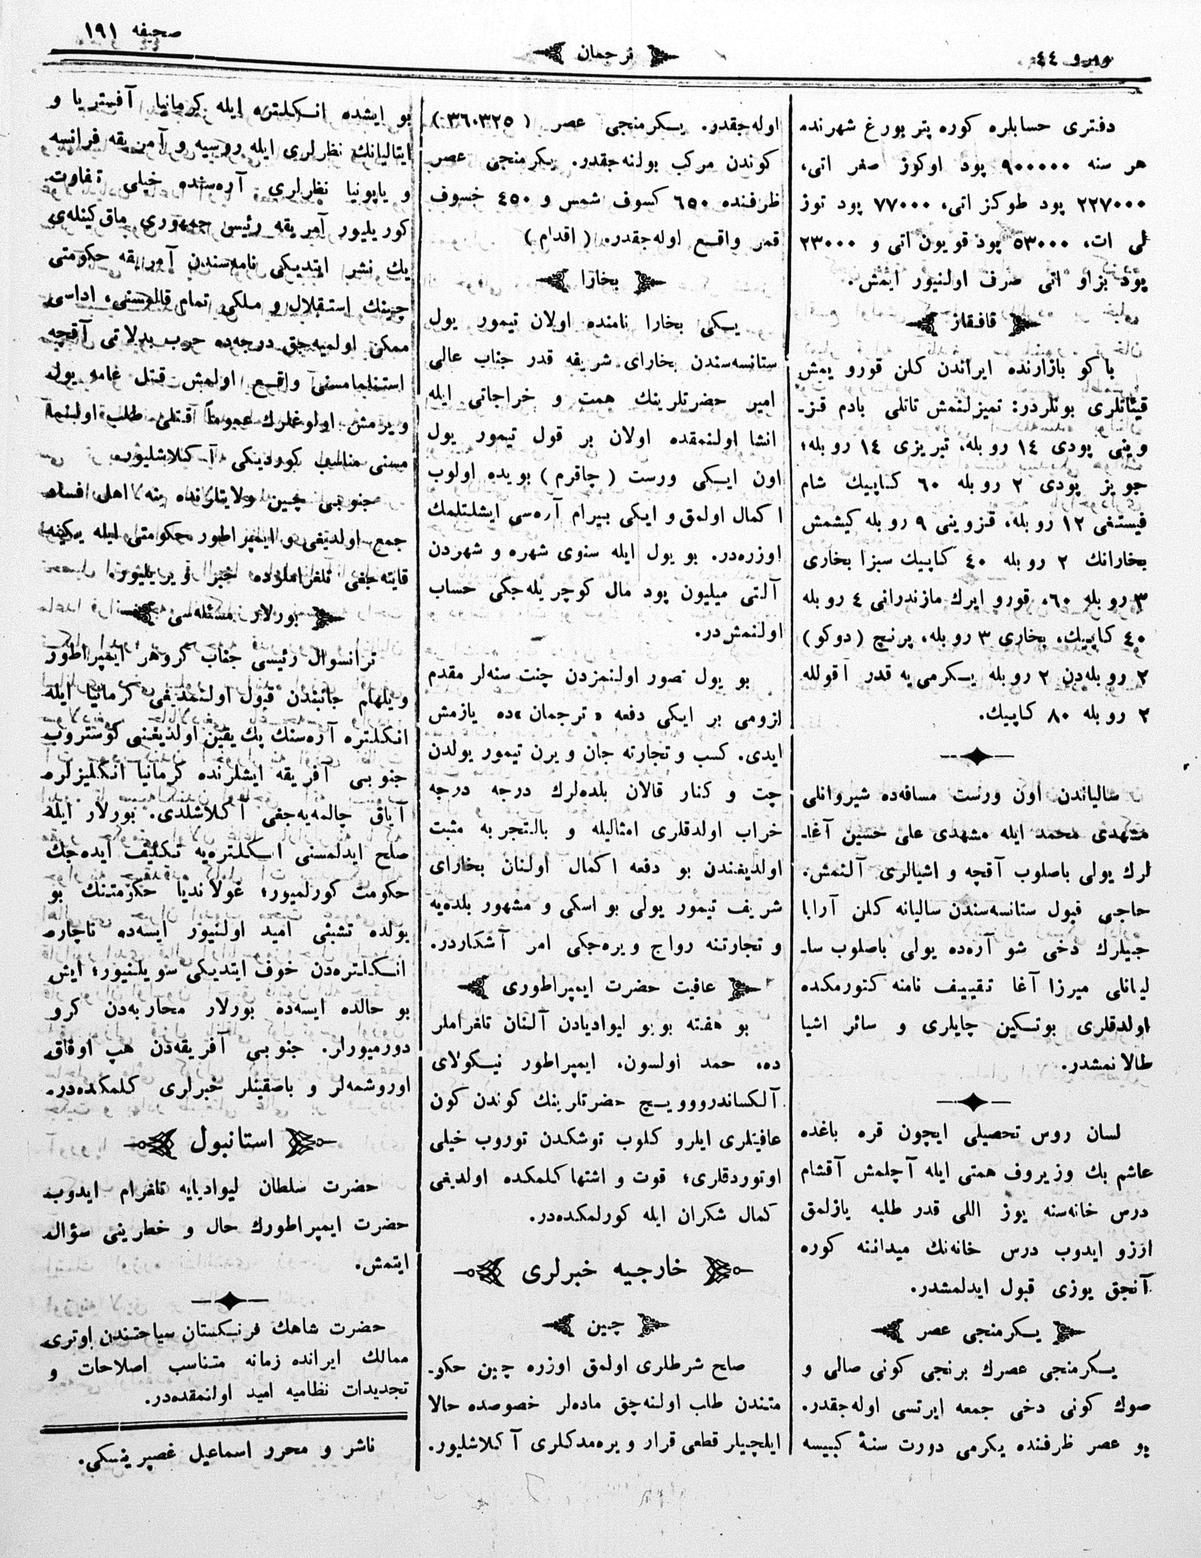 صحیفه ۱۹۱
ترجمان
نومرو ٤٤
دفتری حسابلره كوره پتربورغ شهرنده
هر سنه ۹۰۰۰۰۰ پود اوكوز صغر اتی،
۲۲۷۰۰۰ پود طوكز اتی، ۷۷۰۰۰ پود توز
لی ات، ۵۳۰۰۰ پود قویون اتی و ۲۳۰۰۰
پود بزاو اتی صرف اولنیور ایمش.
قافقاز
باكو بازارنده ایراندن كلن قورو یمش
قیئاتلری بونلردر: تمیزلنمش تاتلی بادم قزـ
وینی پودی ۱٤ روبله، تبریزی ۱٤ روبله؛
جویز پودی ۲ روبله ٦۰ كاپیك شام
فیستغی ۱۲ روبله، قزوینی ۹ روبله كیشمش
بخارانك ۲ روبله ٤۰ كاپیك سبزا بخاری
۳ روبله ٦۰، قورو ایرك مازندرانی ٤ روبله
٤۰ كاپیك، بخاری ۳ روبله، پرنچ (دوكو)
۲ روبله‌دن ۲ روبله یكرمی‌یه قدر آقولله
۲ روبله ۸۰ كاپیك.
سالیاندن اون ورست مسافه‌ده شیروانلی
مشهدی محمد ایله مشهدی علی حسین آغاـ
لرك یولی باصلوب آقچه و اشیالری آلنمش.
حاجی قبول ستانسه‌سندن سالیانه كلن آرابا
جیلرك دخی شو آره‌ده یولی باصلوب ساـ
لیانلی میرزا آغا تقییف نامنه كتورمكده
اولدقلری بوتكین چایلری و سائر اشیا
طالانمشدر.
لسان روس تحصیلی ایچون قره باغده
عاشم بك وزیروف همتی ایله آچلمش آقشام
درس خانه‌سنه یوز اللی قدر طلبه یازلمق
ارزو ایدوب درس خانه‌نك میداننه كوره
آنجق یوزی قبول ایدلمشدر.
یكرمنجی عصر
یكرمنجی عصرك برنجی كونی صالی و
صوك كونی دخی جمعه ایرتسی اوله‌جقدر.
بو عصر ظرفنده یكرمی دورت سنهٔ كبیسه
اوله‌جقدر. یكرمنجی عصر (۳٦۰۳۲۵)
كوندن مركب بولنه‌جقدر. یكرمنجی عصر
ظرفنده ٦۵۰ كسوف شمس و ٤۵۰ خسوف
قمر واقع اوله‌جقدر. (اقدام)
بخارا
یكی بخارا نامنده اولان تیمور یول
ستانسه‌سندن بخارای شریفه قدر جناب عالی
امیر حضرتلرینك همت و خراجاتی ایله
انشا اولنمقده اولان بر قول تیمور یول
اون ایكی ورست (چاقرم) بویده اولوب
اكمال اولمق و ایكی بیرام آره‌سی ایشلتلمك
اوزره‌در. بو یول ایله سنوی شهره و شهردن
آلتی میلیون پود مال كوچریله‌جكی حساب
اولنمش‌در.
بو یول تصور اولنمزدن چنت سنه‌لر مقدم
لزومی بر ایكی دفعه «ترجمان»ده یازمش
ایدی. كسب و تجارته جان ویرن تیمور یولدن
چت و كنار قالان بلده‌لرك درجه درجه
خراب اولدقلری امثالیله و بالتجربه مثبت
اولدیغندن بو دفعه اكمال اولنان بخارای
شریف تیمور یولی بو اسكی و مشهور بلده‌یه
و تجارتنه رواج ویره‌جكی امر آشكاردر.
عاقبت حضرت ایمپراطوری
بو هفته بویو لیوادیادن آلنان تلغراملر
ده، حمد اولسون، ایمپراطور نیكولای
آلكساندروویچ حضرتلرینك كوندن كون
عافیتلری ایلرو كلوب توشكدن توروب خیلی
اوتوردقلری؛ قوت و اشتها كلمكده اولدیغی
كمال شكران ایله كورلمكده‌در.
خارجیه خبرلری
چین
صلح شرطلری اولمق اوزره چین حكوـ
متندن طلب اولنه‌چق ماده‌لر خصوصده حالا
ایلچیلر قطعی قرار ویره‌مدكلری آكلاشلیور.
بو ایشده انكلتره ایله كرمانیا آفستریا و
ایتالیانك نظرلری ایله روسیه و آمریقه فرانسه
و یاپونیا نظرلری آره‌سنده خیلی تفاوت
كوریلیور آمریقه رئیس جمهوری ماق كینله‌ی
یك نشر ایتدیكی نامه‌سندن آمریقه حكومتی
چینك استقلال و ملكی تمام قالمسنی، اداسی
ممكن اولمیه‌جق درجه‌ده حرب بدلاتی آقچه
استنلمامسنی واقع اولمش قتل عامه یول
ویرمش اولوغلرك عموماً قتلی طلب اولنمه
مسنی مناسب كوردیكی آكلاشلیور.
جنوبی چین ولایتلرنده ینه اهل افساد
جمع اولدیغی و ایمپراطور حكومتی ایله یكینه
قاینه‌جغی تلغراملرده خبر ویریلیور.
بورلار مسئله‌سی
ترانسوال رئیسی جناب كروهر ایمپراطور
ویلهام جانبندن قبول اولنمدیغی كرمانیا ایله
انكلتره آره‌سنك پك یقین اولدیغنی كوستروب
جنوبی آفریقه ایشلرنده كرمانیا انكلیزلره
آیاق چالمه‌یه‌جغی آكلاشلدی. بورلار ایله
صلح ایدلمسنی انكلتره‌یه تكلیف ایده‌جك
حكومت كورلمیور؛ غولاندیا حكومتنك بو
یولده تشبثی امید اولنیور ایسه‌ده ناچاره
انكلتره‌دن خوف ایتدیكی سویلنیور؛ ایش
بو حالده ایسه‌ده بورلار محاربه‌دن كرو
دورمیورلر. جنوبی آفریقه‌دن هپ اوفاق
اوروشمه‌لر و باصقینلر خبرلری كلمكده‌در.
استانبول
حضرت سلطان لیوادیایه تلغرام ایدوب
حضرت ایمپراطورك حال و خطرینی سؤال
ایتمش.
حضرت شاهك فرنكستان سیاحتندن اوتری
ممالك ایرانده زمانه متناسب اصلاحات و
تجدیدات نظامیه امید اولنمقده‌در.
ناشر و محرر اسماعیل غصپرینسكی.